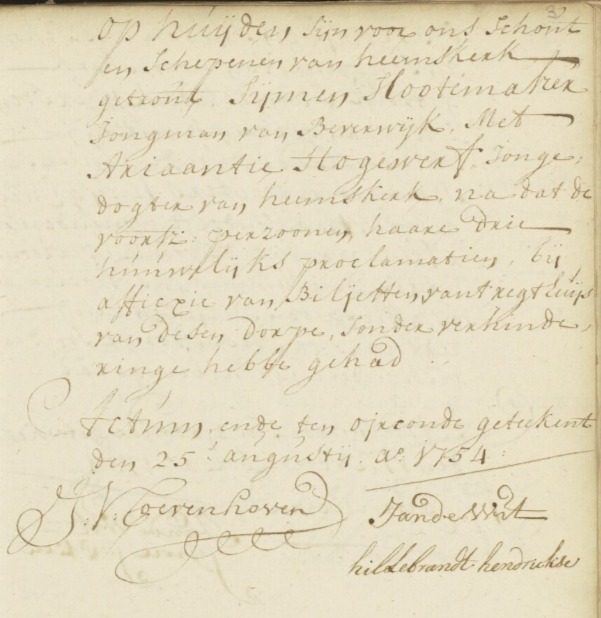 op huijden sijn voor ons Schout
en Schepenen van heemskerk
getrout, Sijmen Slootemaker
Jongman van Beverwijk, Met
Ariaantie Hogewerf, Jonge,
dogter van heemskerk, na dat de
voorsz: perzoonen, haare drie
huuwelijks proclamatien, bij
affiexie van Biljetten vant regthuijs
van desen dorpe, sonder verhinde,
ringe hebbe gehad
Actum, ende ten oirconde geteekent
den 25: augustij: ao: 1754:
Jan de Wit
hildebrandt hendrickse